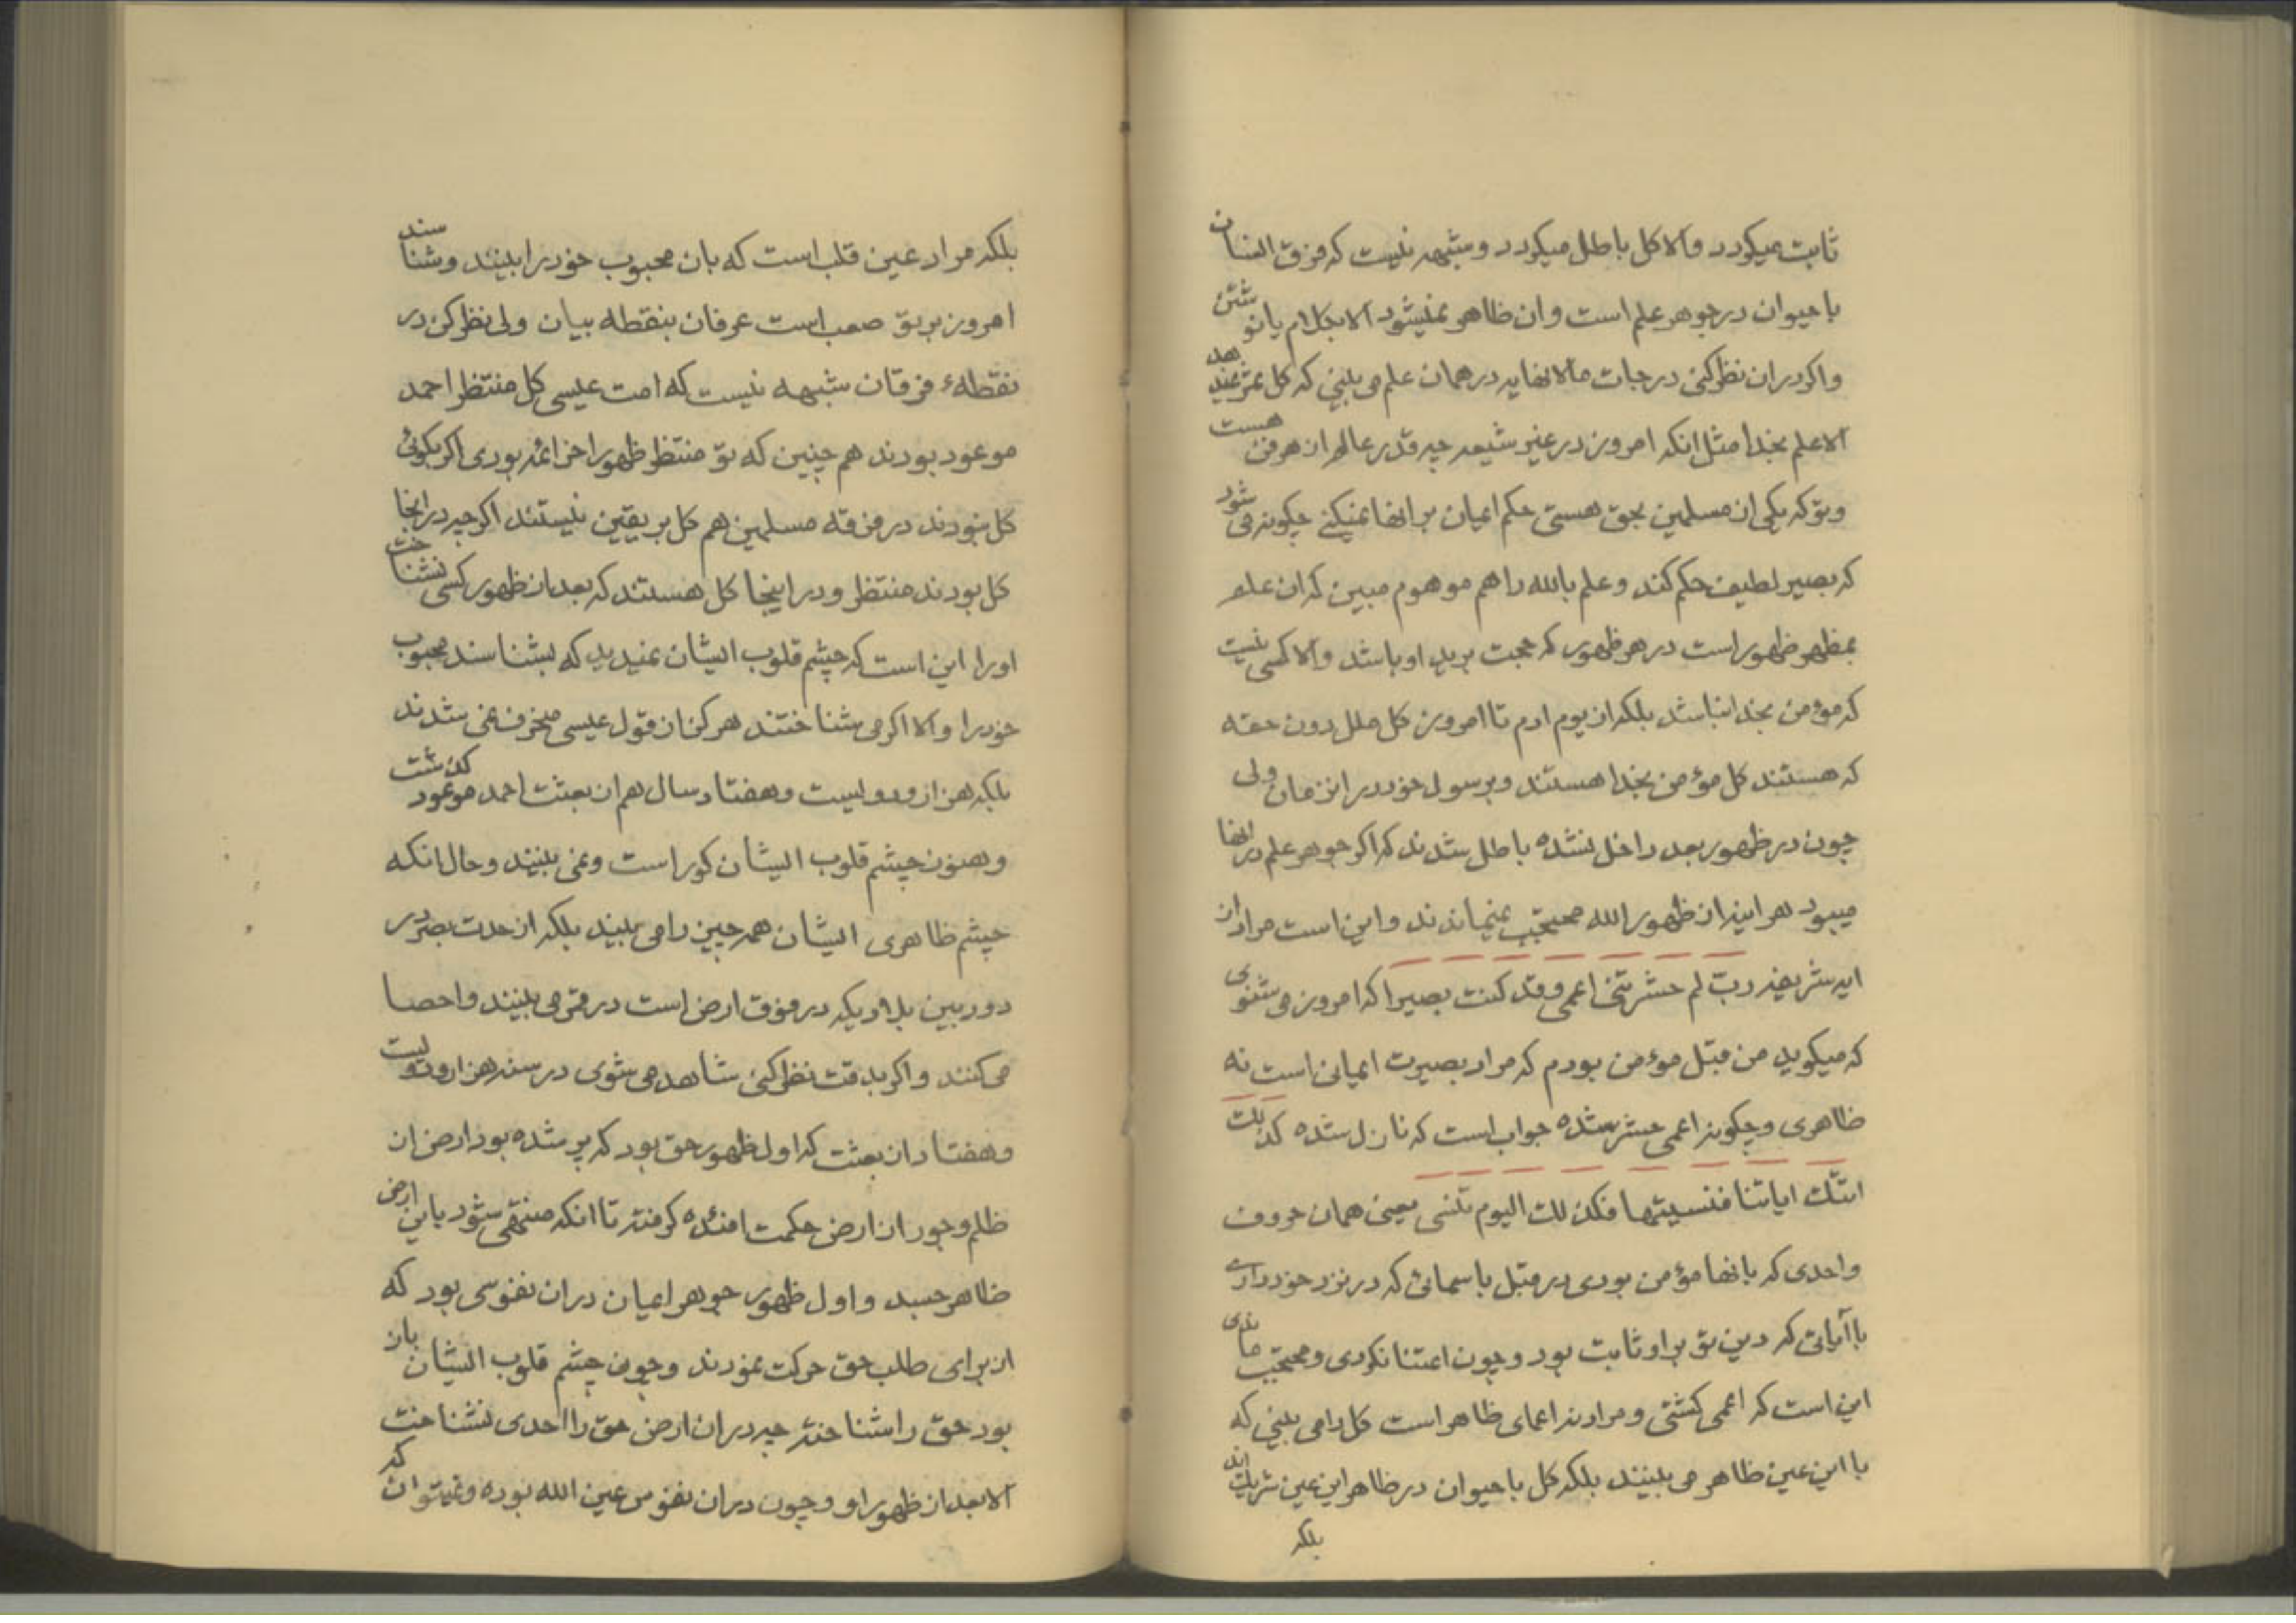 ثابت میکردد والا کل باطل میکردد و شبهه نیست که فرق انسان
با حیوان در جوهر علم است وان ظاهر نمیشود الا بکلام یا نوشتن
واکر دران نظر کنی درجات ما لا نهایه در همان علم می بینی که کل ثمر نمیدهد
الا علم بخدا مثل انکه امروز در غیر شیعه چه قدر عالم از هر فن هست
وتو که یکی از مسلمین بحق هستی حکم ایمان بر انها نمیکنی چکونه می شود
که بصیر لطیف حکم کند و علم بالله را هم موهوم مبین که ان علم
بمظهر ظهور است در هر ظهور که حجت بر ید او باشد والا کسی نیست
که مؤمن بخدا نباشد بلکه از یوم ادم تا امروز کل ملل دون حقه
که هستند کل مؤمن بخدا هستند وبرسول خود در ان زمان ولی
چون در ظهور بعد داخل نشده باطل شدند که اکر جوهر علم در انها
میبود هر اینه از ظهور الله محتجب نمیماندند واین است مراد از
ایه شریفه رب لم حشرتنی اعمی وقد کنت بصیرا که امروز می شنوی
که میکوید من قبل مؤمن بودم که مراد بصیرت ایمانی است نه
ظاهری وچکونه اعمی حشر شده جواب است که نازل شده کذلک
اتتک ایاتنا فنسیتها فکذلک الیوم تنسی یعنی همان حروف
واحدی که بانها مؤمن بودی در قبل باسمائی که در نزد خود داری
با آیاتی که دین تو براو ثابت بود وچون اعتنا نکردی ومحتجب ماندی
این است که اعمی کشتی ومراد نه اعمای ظاهر است کل را می بینی که
با این عین ظاهر می بینند بلکه کل با حیوان در ظاهر این عین شریک اند
بلکه
بلکه مراد عین قلب است که بان محبوب خود را ببینند وشناسند
امروز بر تو صعب است عرفان بنقطه بیان ولی نظر کن در
نقطهٔ فرقان شبهه نیست که امت عیسی کل منتظر احمد
موعود بودند هم چنین که تو منتظر ظهور اخر ائمه بودی اکر بکوئی
کل نبودند در فرقه مسلمین هم کل بر یقین نیستند اکر چه در انجا
کل بودند منتظر ودر اینجا کل هستند که بعد از ظهور کسی نشناخت
اورا این است که چشم قلوب ایشان نمیدید که بشناسند محبوب
خود را والا اکر می شناختند هر کز از قول عیسی منحرف نمی شدند
بلکه هزار ودویست وهفتاد سال هم از بعثت احمد موعود کذشت
وهنوز چشم قلوب ایشان کور است ونمی بینند وحال انکه
چشم ظاهری ایشان همه چیز را می بیند بلکه از حدت بصر در
دوربین بلاد یکه در فوق ارض است در قمر می بینند واحصا
می کنند واکر بدقت نظر کنی شاهد می شوی در سنه هزار ودویست
وهفتاد از بعثت که اول ظهور حق بود که پر شده بود ارض از
ظلم وجور از ارض حکمت افئده کرفته تا انکه منتهی شود باین ارض
ظاهر جسد واول ظهور جوهر ایمان دران نفوسی بود که
از برای طلب حق حرکت نمودند وچون چشم قلوب ایشان باز
بود حق را شناخته چه دران ارض حق را احدی نشناخت
الا بعد از ظهور او وچون دران نفوس عین الله بوده ونمیتوان که